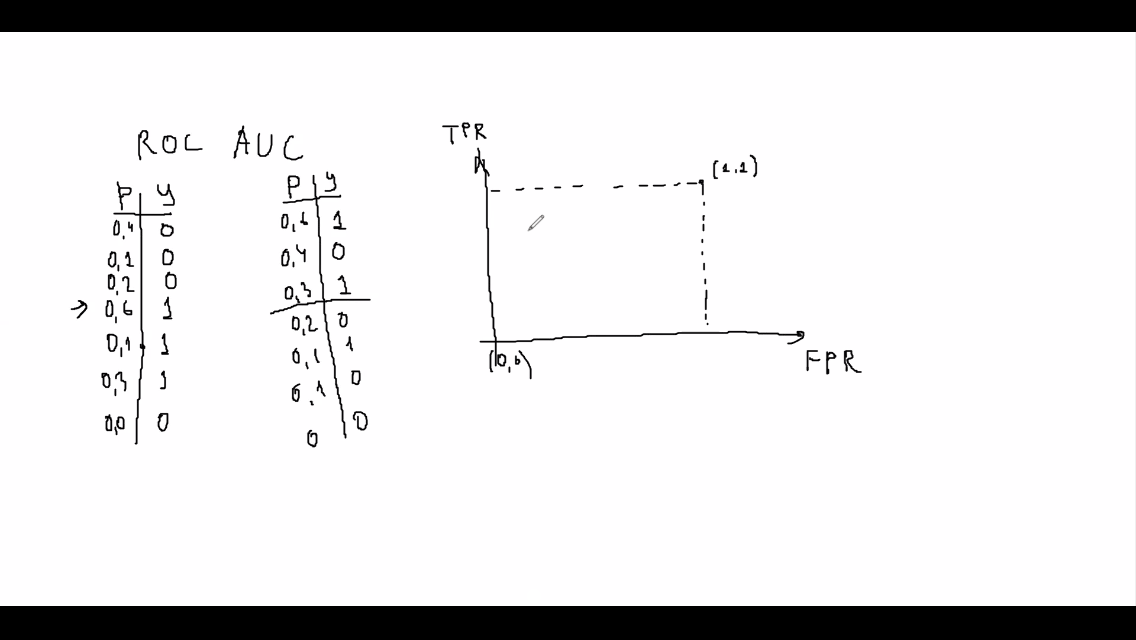 ROC AUC
P y
0,4 0
0,1 0
0,2 0
→ 0,6 1
0,1 1
0,3 1
0,0 0
P y
0,6 1
0,4 0
0,3 1
0,2 0
0,1 1
0,1 0
0 0
TPR
(1,1)
(0,0)
FPR